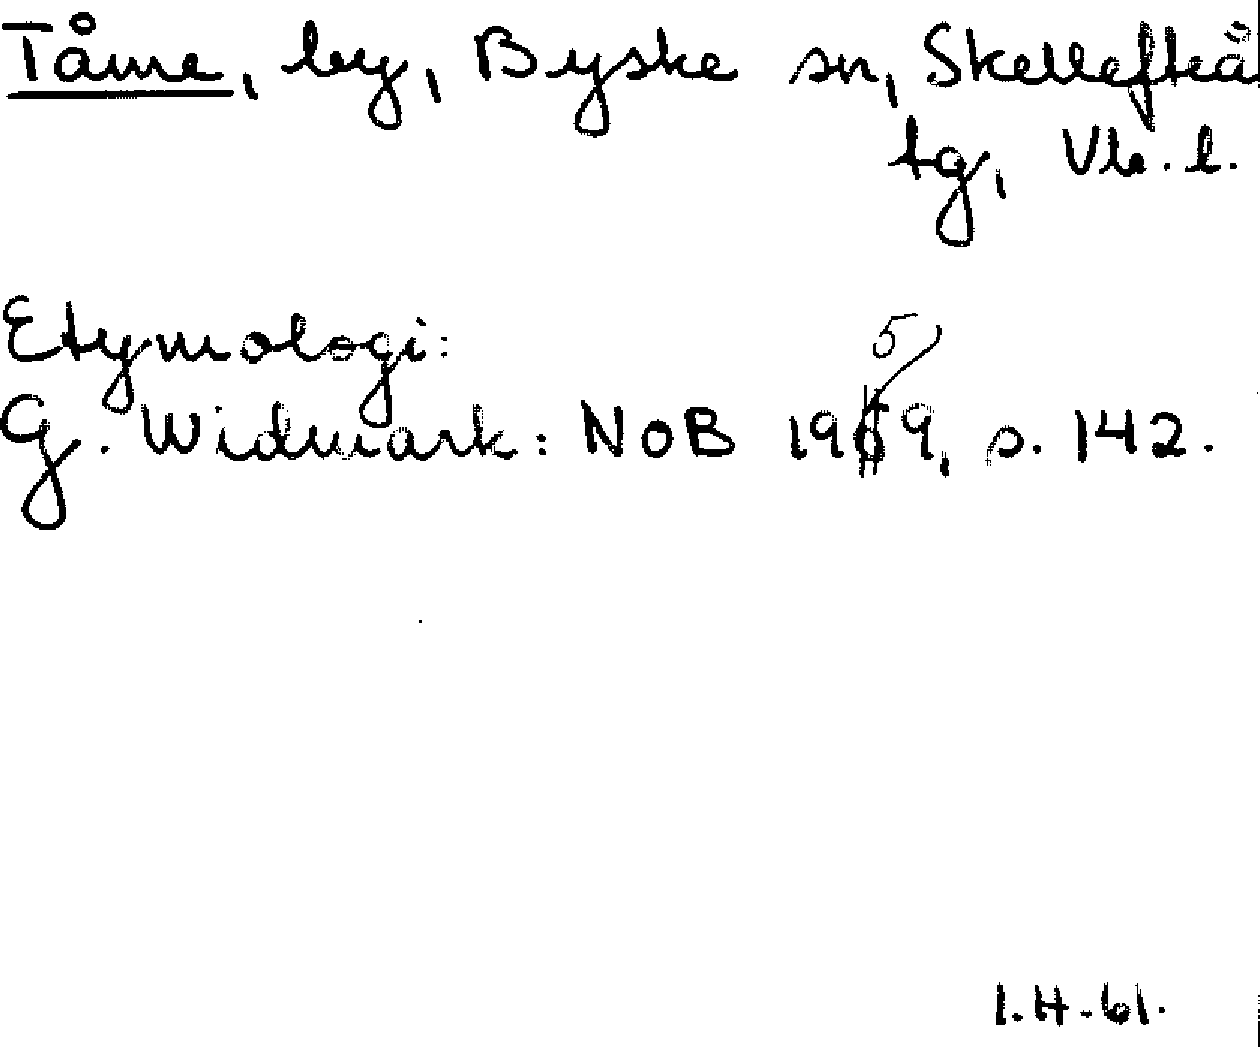 Tåme, by, Byske sn, Skellefteå
tg, Vb. l.
Etymologi:
G. Widmark: NoB 1959, s. 142.
I.H.-61.